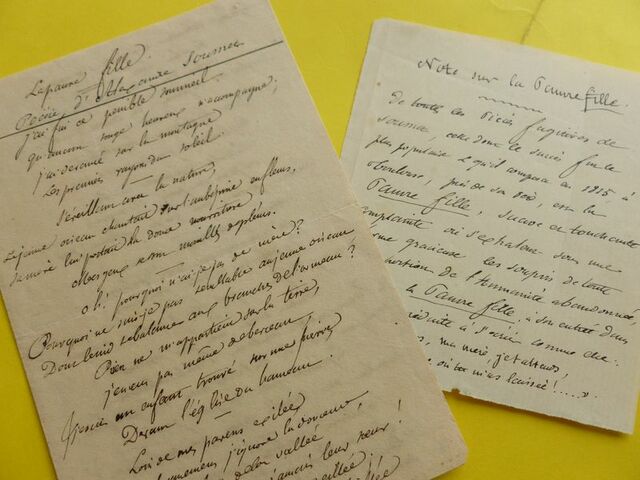 La pauvre fille.
Poésie, d'Alexandre Soumet
J'ai fui ce pénible sommeil
Qu'aucun songe heureux n'accompagne,
J'ai devancé sur la montagne
Les premiers rayons du soleil.
S'éveillant avec la nature,
Le jeune oiseau chantait sur l'aubépine en fleurs,
Sa mère lui portait la douce nourriture,
Mes yeux se sont mouillés de pleurs.
Oh! pourquoi n'ai-je pas de mère?
Pourquoi ne suis-je pas semblable au jeune oiseau
Dont le nid se balance aux branches de l'ormeau?
Rien ne m'appartient sur la terre,
Je n'eus pas même de berceau,
Et je suis un enfant trouvé sur une pierre
Devant l'église du hameau.
Loin de mes parens exilée,
j'ignore la douceur,
de la vallée
leur sœur!
Note sur la Pauvre fille.
De toutes les Pièces fugitives de
Soumet, celle dont le succès fut le
plus populaire et qu'il composa en 1815 à
Toulouse, près de son , est la
Pauvre fille, suave et touchante
complainte où s'exhalent sous une
forme gracieuse les soupirs de toute
portion de l'Humanité abandonnée
la Pauvre fille, à son entrée dans
réduite à s'écrier comme elle:
ma mère, je t'attends,
où tu m'as laissée!.....»